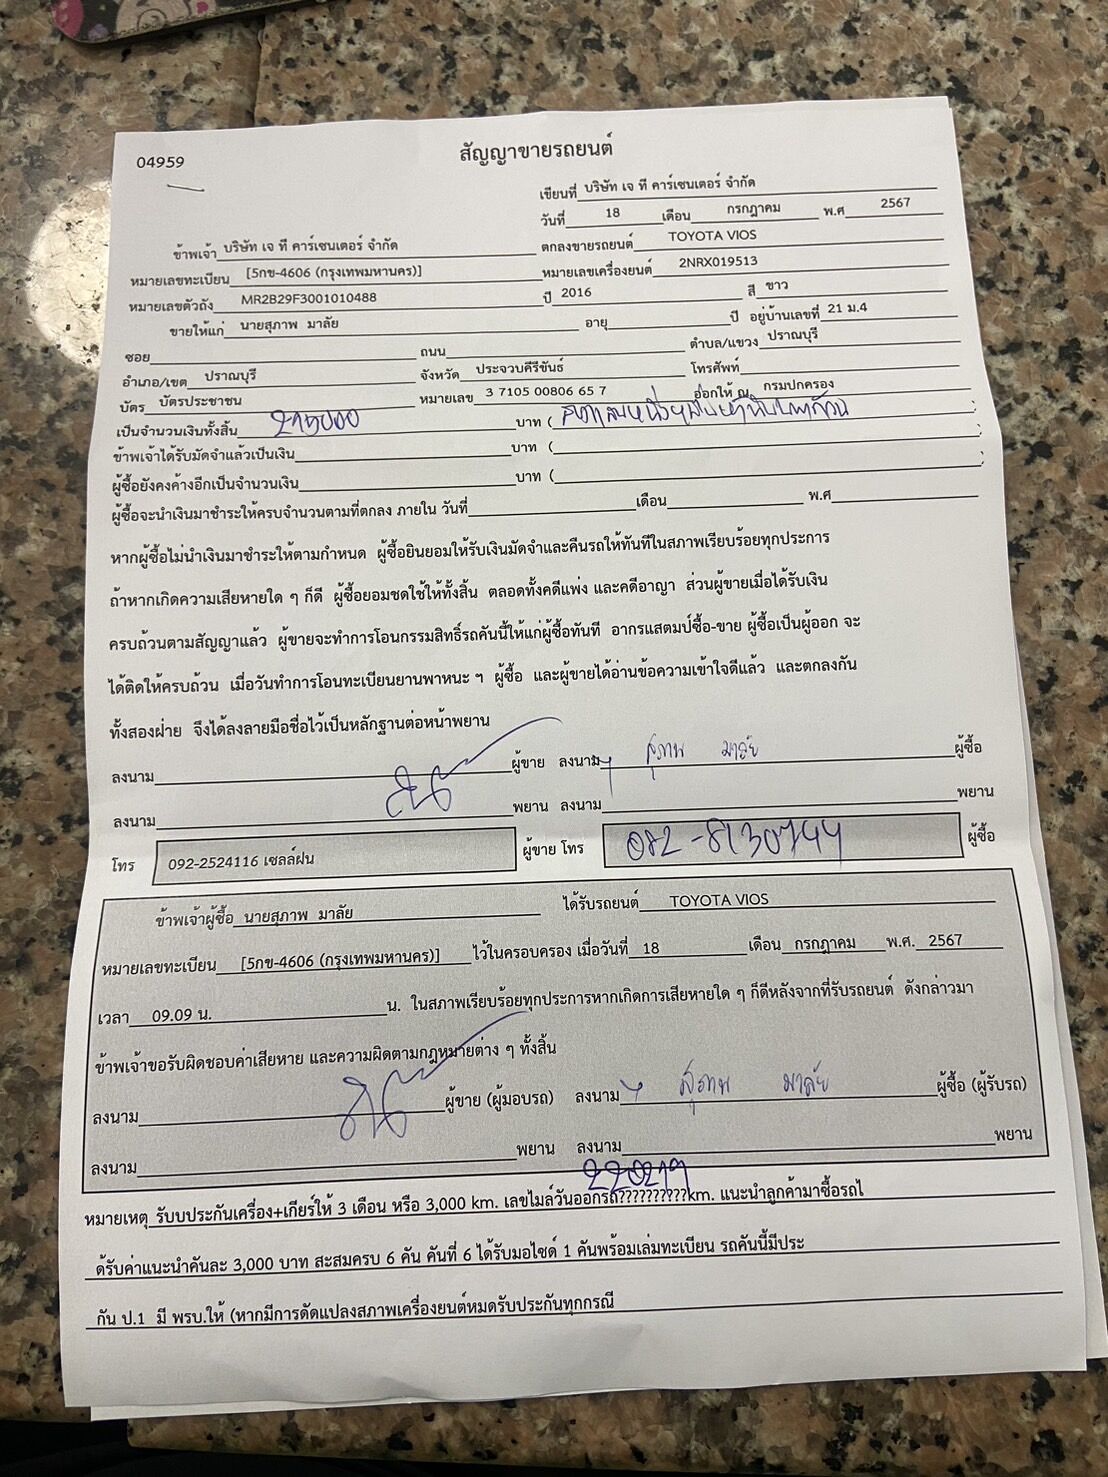 04959
สัญญาขายรถยนต์
เขียนที่ บริษัท เจ ที คาร์เซนเตอร์ จำกัด
วันที่ 18 เดือน กรกฎาคม พ.ศ 2567
ข้าพเจ้า บริษัท เจ ที คาร์เซนเตอร์ จำกัด ตกลงขายรถยนต์ TOYOTA VIOS
หมายเลขทะเบียน [5กข-4606 (กรุงเทพมหานคร)] หมายเลขเครื่องยนต์ 2NRX019513
หมายเลขตัวถัง MR2B29F3001010488 ปี 2016 สี ขาว
ขายให้แก่ นายสุภาพ มาลัย อายุ ปี อยู่บ้านเลขที่ 21 ม.4
ซอย ถนน ตำบล/แขวง ปราณบุรี
อำเภอ/เขต ปราณบุรี จังหวัด ประจวบคีรีขันธ์ โทรศัพท์
บัตร บัตรประชาชน หมายเลข 3 7105 00806 65 7 ออกให้ ณ กรมปกครอง
เป็นจำนวนเงินทั้งสิ้น 215000 บาท (สองแสนหนึ่งหมื่นห้าพันบาทถ้วน
ข้าพเจ้าได้รับมัดจำแล้วเป็นเงิน บาท ( )
ผู้ซื้อยังคงค้างอีกเป็นจำนวนเงิน บาท ( )
ผู้ซื้อจะนำเงินมาชำระให้ครบจำนวนตามที่ตกลง ภายใน วันที่ เดือน พ.ศ
หากผู้ซื้อไม่นำเงินมาชำระให้ตามกำหนด ผู้ซื้อยินยอมให้รับเงินมัดจำและคืนรถให้ทันทีในสภาพเรียบร้อยทุกประการ
ถ้าหากเกิดความเสียหายใด ๆ ก็ดี ผู้ซื้อยอมชดใช้ให้ทั้งสิ้น ตลอดทั้งคดีแพ่ง และคดีอาญา ส่วนผู้ขายเมื่อได้รับเงิน
ครบถ้วนตามสัญญาแล้ว ผู้ขายจะทำการโอนกรรมสิทธิ์รถคันนี้ให้แก่ผู้ซื้อทันที อากรแสตมป์ซื้อ-ขาย ผู้ซื้อเป็นผู้ออก จะ
ได้ติดให้ครบถ้วน เมื่อวันทำการโอนทะเบียนยานพาหนะ ฯ ผู้ซื้อ และผู้ขายได้อ่านข้อความเข้าใจดีแล้ว และตกลงกัน
ทั้งสองฝ่าย จึงได้ลงลายมือชื่อไว้เป็นหลักฐานต่อหน้าพยาน
ลงนาม ผู้ขาย ลงนาม สุภาพ มาลัย ผู้ซื้อ
ลงนาม พยาน ลงนาม พยาน
โทร 092-2524116 เซลล์ฝน ผู้ขาย โทร 082-8130744 ผู้ซื้อ
ข้าพเจ้าผู้ซื้อ นายสุภาพ มาลัย ได้รับรถยนต์ TOYOTA VIOS
หมายเลขทะเบียน [5กข-4606 (กรุงเทพมหานคร)] ไว้ในครอบครอง เมื่อวันที่ 18 เดือน กรกฎาคม พ.ศ. 2567
เวลา 09.09 น. น. ในสภาพเรียบร้อยทุกประการหากเกิดการเสียหายใด ๆ ก็ดีหลังจากที่รับรถยนต์ ดังกล่าวมา
ข้าพเจ้าขอรับผิดชอบค่าเสียหาย และความผิดตามกฎหมายต่าง ๆ ทั้งสิ้น
ลงนาม ผู้ขาย (ผู้มอบรถ) ลงนาม สุภาพ มาลัย ผู้ซื้อ (ผู้รับรถ)
ลงนาม พยาน ลงนาม พยาน
หมายเหตุ รับบประกันเครื่อง+เกียร์ให้ 3 เดือน หรือ 3,000 km. เลขไมล์วันออกรถ??????????km. แนะนำลูกค้ามาซื้อรถไ
ด้รับค่าแนะนำคันละ 3,000 บาท สะสมครบ 6 คัน คันที่ 6 ได้รับมอไซด์ 1 คันพร้อมเล่มทะเบียน รถคันนี้มีประ
กัน ป.1 มี พรบ.ให้ (หากมีการดัดแปลงสภาพเครื่องยนต์หมดรับประกันทุกกรณี